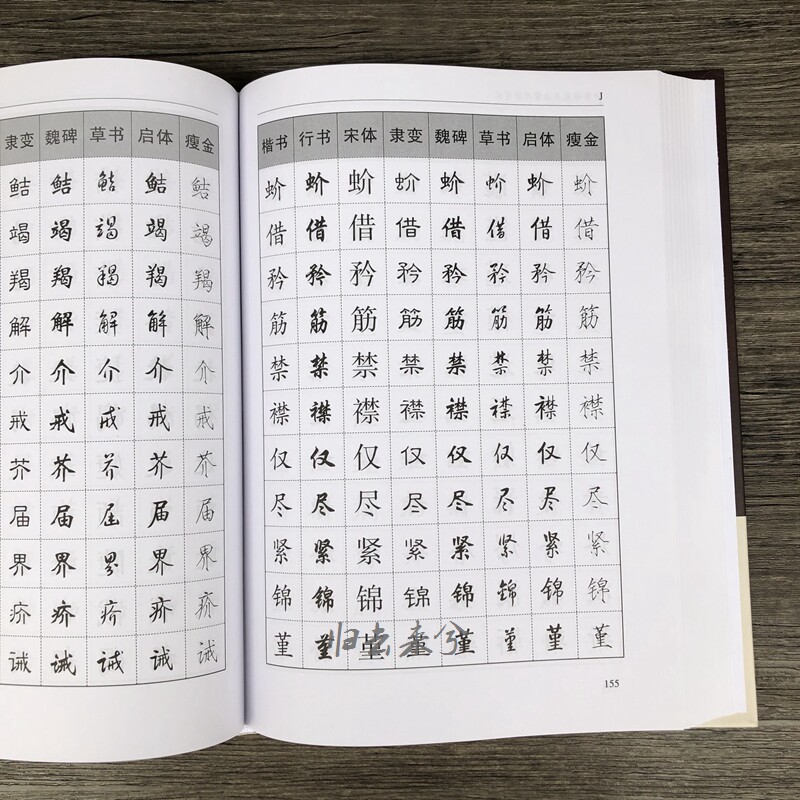 隶变 魏碑 草书 启体 瘦金
鲒 鲒 鲒 鲒 鲒
竭 竭 竭 竭 竭
羯 羯 羯 羯 羯
解 解 解 解 解
介 介 介 介 介
戒 戒 戒 戒 戒
芥 芥 芥 芥 芥
届 届 届 届 届
界 界 界 界 界
疥 疥 疥 疥 疥
诫 诫 诫 诫 诫
J
楷书 行书 宋体 隶变 魏碑 草书 启体 瘦金
蚧 蚧 蚧 蚧 蚧 蚧 蚧 蚧
借 借 借 借 借 借 借 借
矜 矜 矜 矜 矜 矜 矜 矜
筋 筋 筋 筋 筋 筋 筋 筋
禁 禁 禁 禁 禁 禁 禁 禁
襟 襟 襟 襟 襟 襟 襟 襟
仅 仅 仅 仅 仅 仅 仅 仅
尽 尽 尽 尽 尽 尽 尽 尽
紧 紧 紧 紧 紧 紧 紧 紧
锦 锦 锦 锦 锦 锦 锦 锦
堇 堇 堇 堇 堇 堇 堇 堇
归去来兮
155